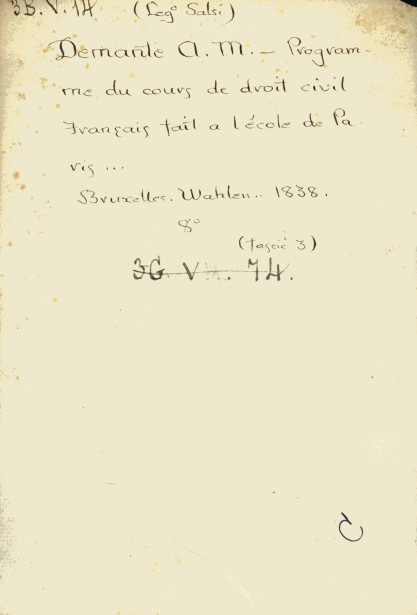 3B.V.14 (Leg° Salsi)
Demante A.M. – Program-
me du cours de droit civil
Français fait a l'école de Pa-
ris...
Bruxelles. Wahlen.. 1838.
8°
(fascic 3)
3G. V . 14.